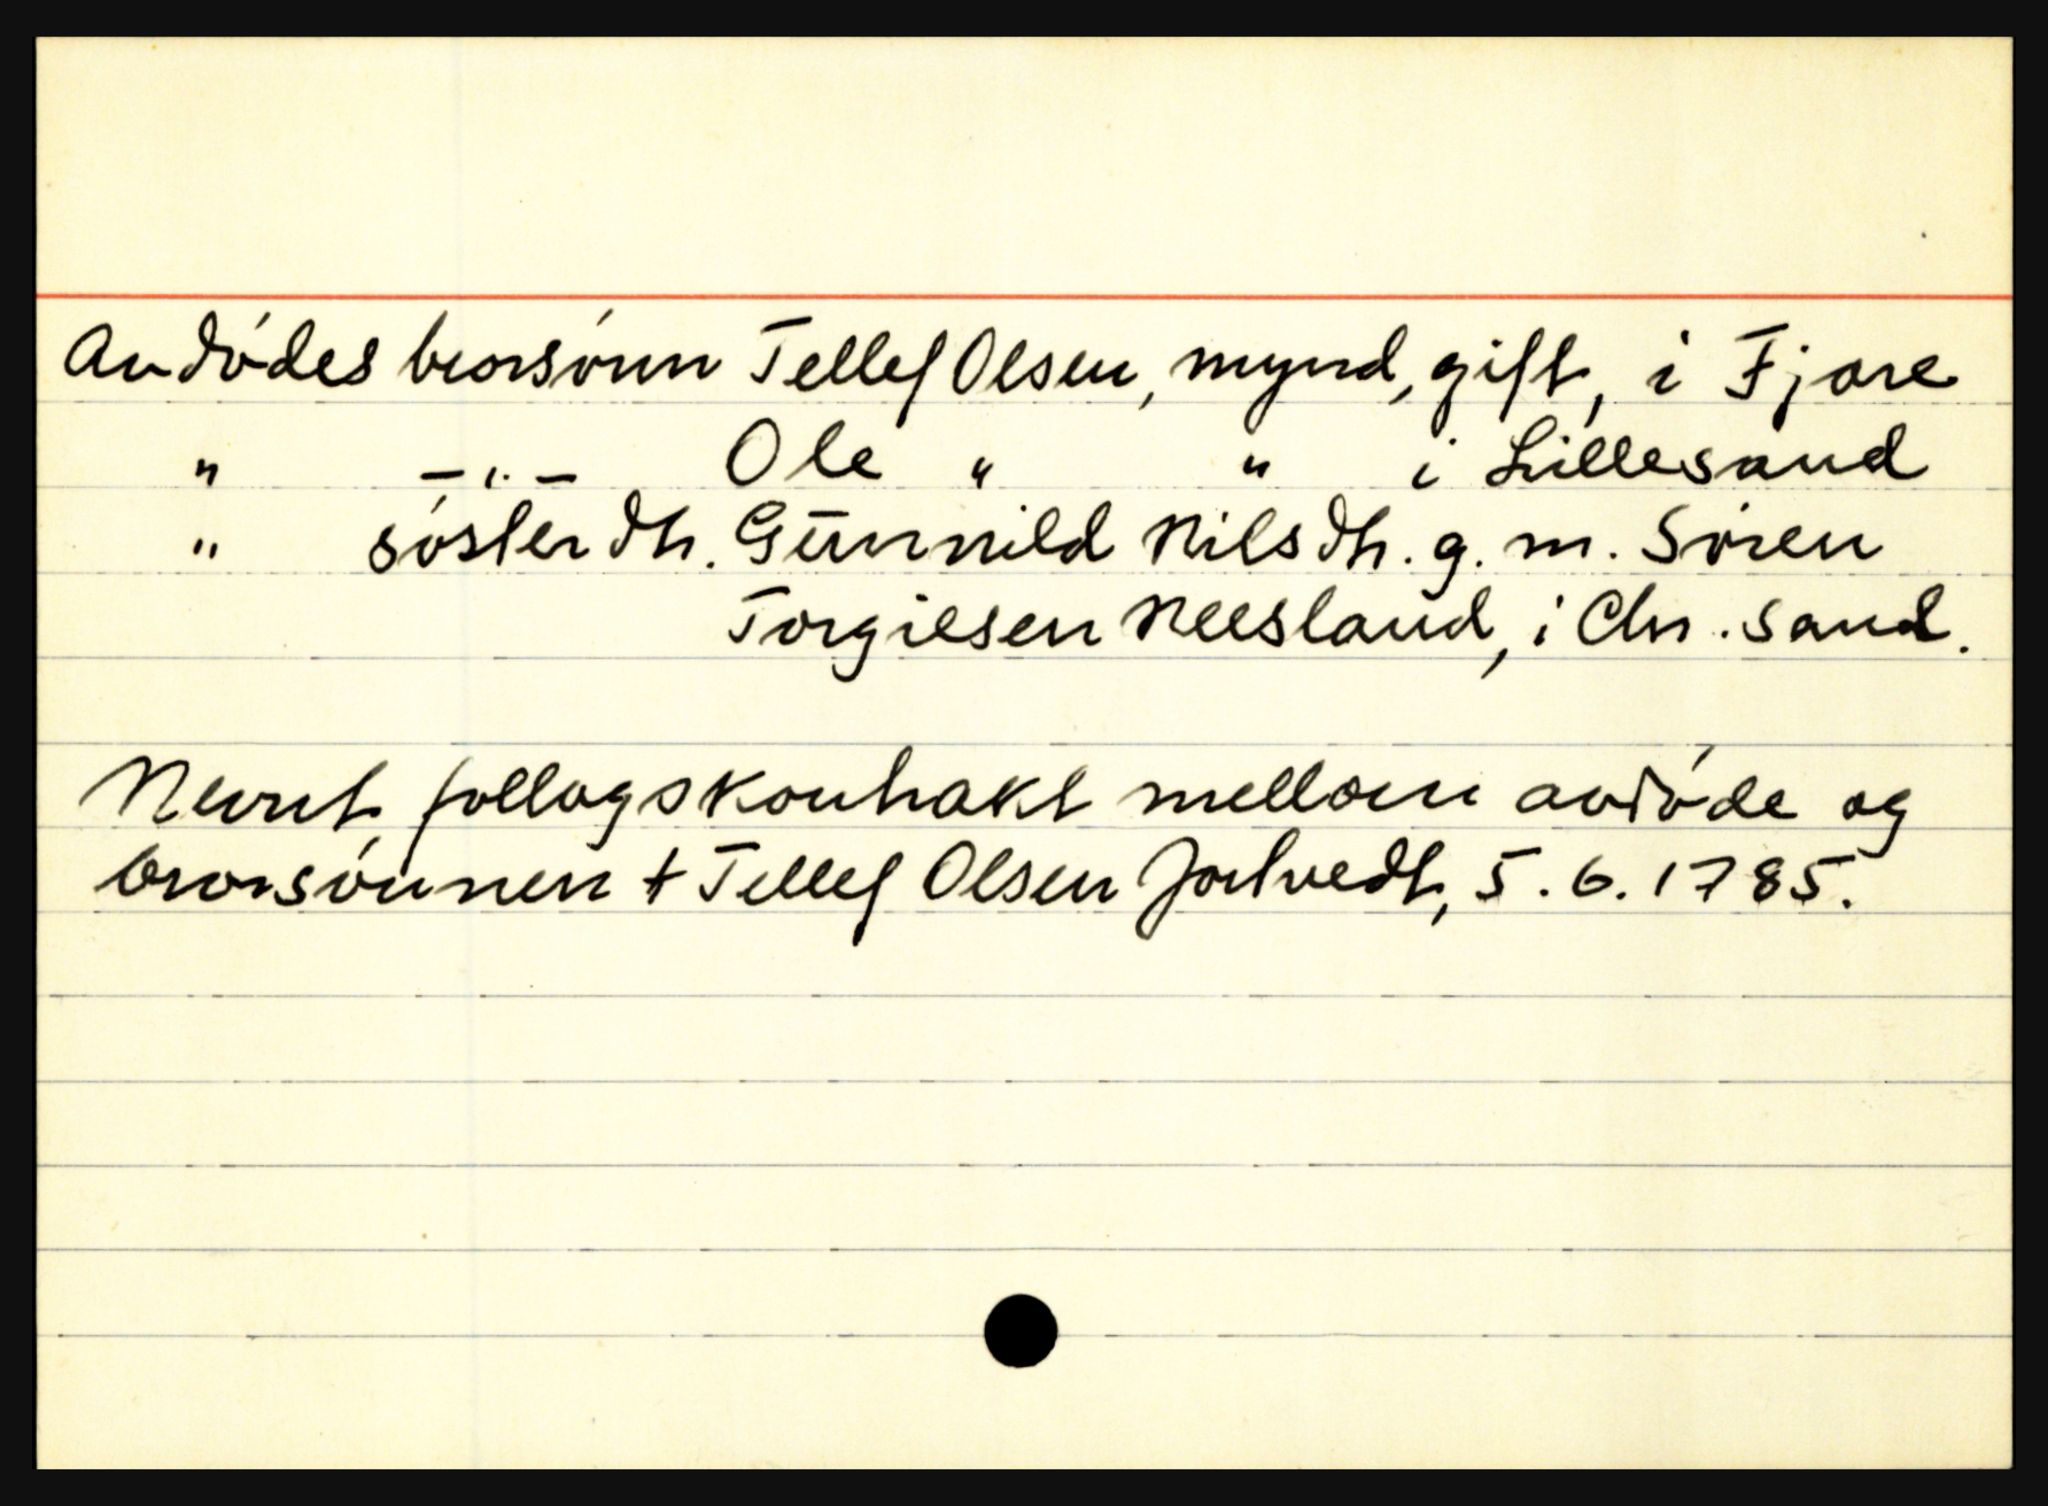 Avdódes brorsónn Tellef Olsen, mynd, gift, i Fjære
" –"– Ole " " i Lillesand
" sósterdtr. Gunnild Nilsdtr. g. m. Sóren
Torgiesen Neesland, i Chr.sand.
Nevnt follagskontrakt mellom avdóde og
brorsónnen + Tellef Olsen Jortvedt, 5.6.1785.